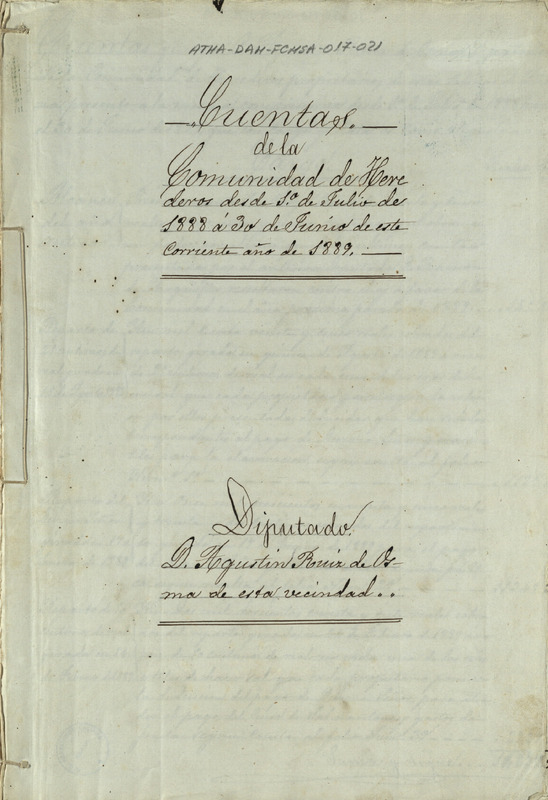 ATHA-DAH-FCMSA-017-021
Cuentas.
de la
Comunidad de Here
deros desde 1.º de Julio de
1888 á 30 de Junio de este
Corriente año de 1889.
Diputado.
D. Agustin Ruiz de Os-
ma de esta vecindad..